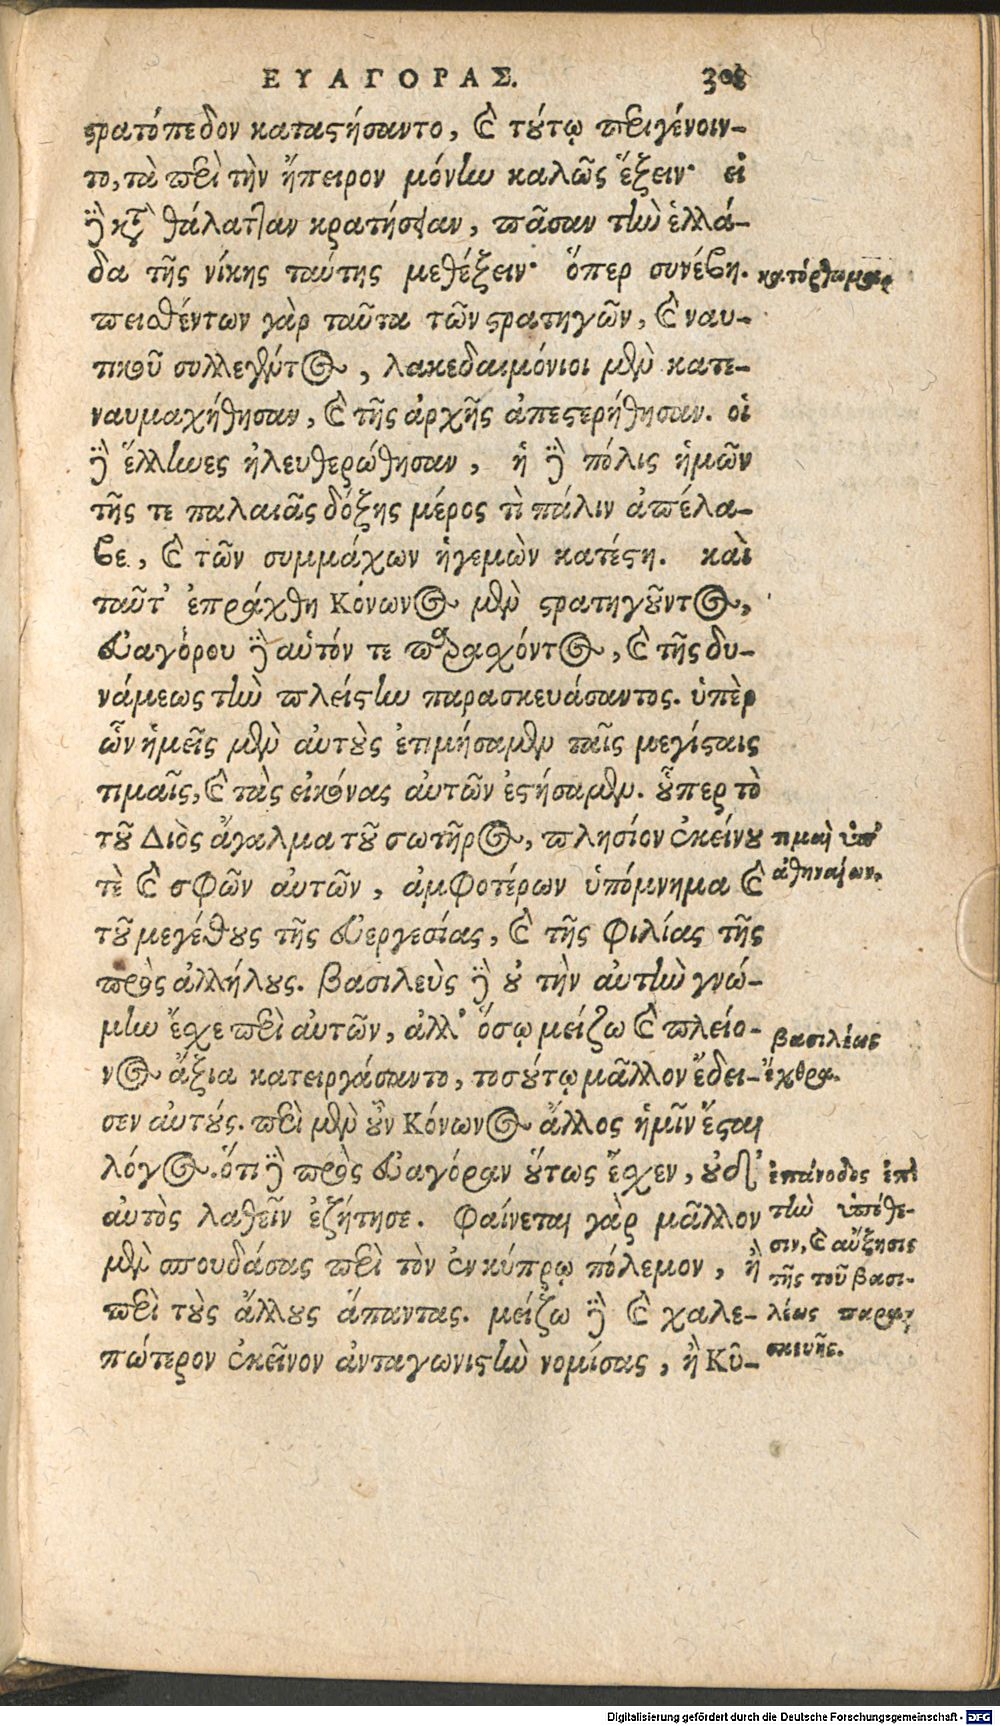 ΕΥΑΓΟΡΑΣ.
στρατόπεδον καταστήσαιντο, καὶ τούτῳ περιγένοιν-
το, τὰ περὶ τὴν ἤπειρον μόνην καλῶς ἕξειν· εἰ
δὲ κατὰ θάλατταν κρατήσειαν, πᾶσαν τὴν ἑλλά-
δα τῆς νίκης ταύτης μεθέξειν· ὅπερ συνέβη.
κατόρθωμα
πεισθέντων γὰρ ταῦτα τῶν στρατηγῶν, καὶ ναυ-
τικοῦ συλλεγέντος, λακεδαιμόνιοι μὲν κατε-
ναυμαχήθησαν, καὶ τῆς ἀρχῆς ἀπεστερήθησαν. οἱ
δὲ ἕλληνες ἠλευθερώθησαν, ἡ δὲ πόλις ἡμῶν
τῆς τε παλαιᾶς δόξης μέρος τὶ πάλιν ἀπέλα-
βε, καὶ τῶν συμμάχων ἡγεμὼν κατέστη. καὶ
ταῦτ' ἐπράχθη Κόνωνος μὲν στρατηγοῦντος,
εὐαγόρου δὲ αὑτόν τε παραχόντος, καὶ τῆς δυ-
νάμεως τὴν πλείστην παρασκευάσαντος. ὑπὲρ
ὧν ἡμεῖς μὲν αὐτοὺς ἐτιμήσαμεν ταῖς μεγίσταις
τιμαῖς, καὶ τὰς εἰκόνας αὐτῶν ἐστήσαμεν. οὗπερ τὸ
τοῦ Διὸς ἄγαλμα τοῦ σωτῆρος, πλησίον ἐκείνου
τιμαὶ ὑπ'
τὲ καὶ σφῶν αὐτῶν, ἀμφοτέρων ὑπόμνημα καὶ
ἀθηναίων.
τοῦ μεγέθους τῆς εὐεργεσίας, καὶ τῆς φιλίας τῆς
πρὸς ἀλλήλους. βασιλεὺς δὲ οὐ τὴν αὐτὴν γνώ-
μην ἔχε περὶ αὐτῶν, ἀλλ' ὅσῳ μείζω καὶ πλείο-
βασιλέως
νος ἄξια κατειργάσαντο, τοσούτῳ μᾶλλον ἔδει-
ἔχθρα.
σεν αὐτούς. περὶ μὲν οὖν Κόνωνος ἄλλος ἡμῖν ἔσται
λόγος. ὅτι δὲ πρὸς εὐαγόραν οὕτως ἔσχεν, οὐδ'
ἐπάνοδος ἐπὶ
αὐτὸς λαθεῖν ἐζήτησε. φαίνεται γὰρ μᾶλλον
τὴν ὑπόθε-
μὲν σπουδάσας περὶ τὸν ἐν κύπρῳ πόλεμον, ἢ
σιν, καὶ αὔξησις
τῆς τοῦ βασι-
περὶ τοὺς ἄλλους ἅπαντας. μείζω δὲ καὶ χαλε-
λέως παρα-
πώτερον ἐκεῖνον ἀνταγωνιστὴν νομίσας, ἢ Κῦ-
σκευῆς.
Digitalisierung gefördert durch die Deutsche Forschungsgemeinschaft - DFG